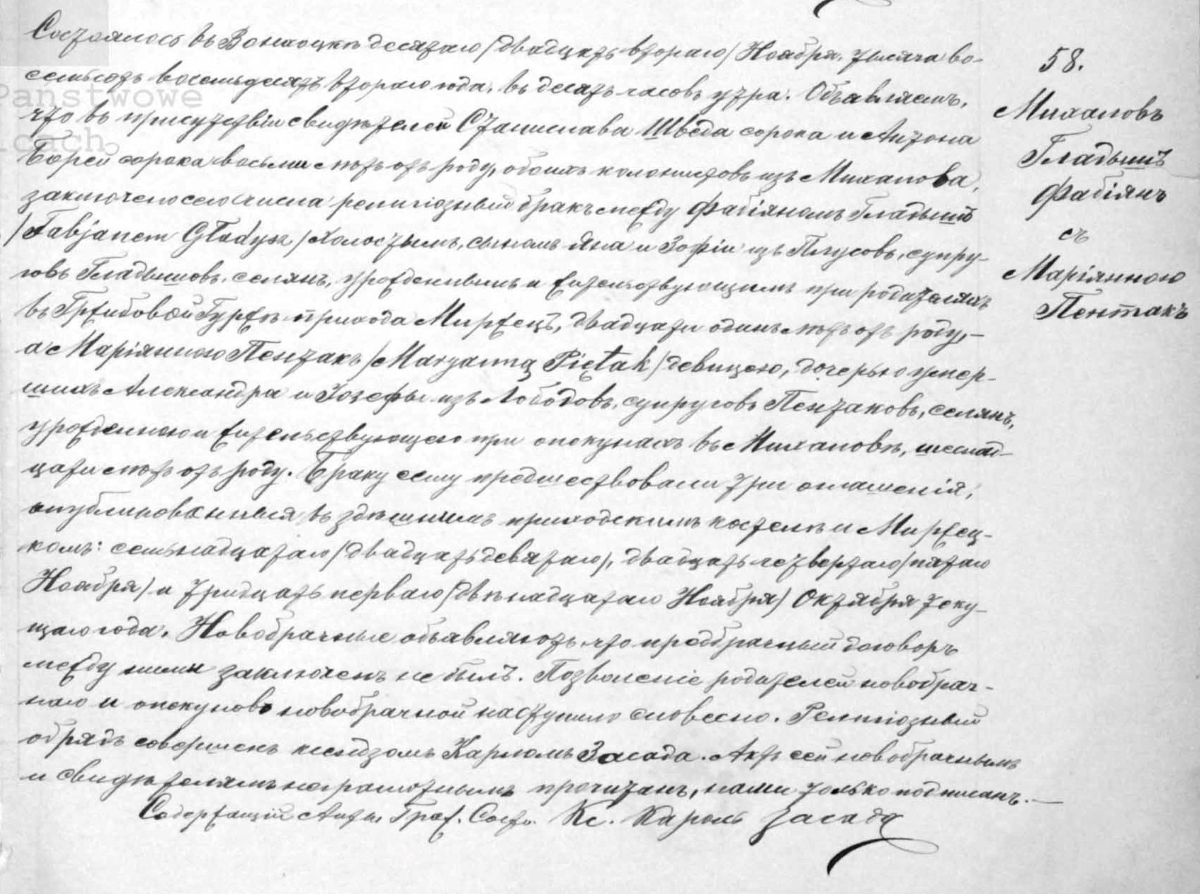 Состоялось въ Вонхоцкѣ десятаго /двадцать втораго/ Ноября, тысяча во-
семьсотъ восемьдесятъ втораго года, въ десять часовъ утра. Объявляемъ,
что въ присутствіи свидѣтелей Станислава Шведа сорока и Антона
сорока восьми лѣтъ отъ роду, обоихъ колонистовъ изъ Михалова,
заключено сего числа религіозный бракъ между Фабіяномъ Гладышъ
/Fabjanem Gładysz/ холостымъ, сыномъ Яна и Зофіи изъ Плусовъ, супру-
говъ Гладышовъ, селянъ, урожденнымъ и жительствующимъ при родителяхъ
въ Гржибовой Гуржѣ прихода Миржецъ, двадцати одинъ лѣтъ отъ роду,-
а Маріянною Пентакъ /Maryanną Piętak/ девицею, дочерью умер-
шихъ Александра и Іозефы изъ Лободовъ, супруговъ Пентаковъ, селянъ,
урожденною и жительствующею при опекунахъ въ Михаловѣ, шеснад-
цати лѣтъ отъ роду. Браку сему предшествовали три оглашенія,
опубликованныя въ здѣшнимъ приходскимъ костелѣ и Миржец-
комъ: семьнадцатаго /двадцать девятаго/, двадцать четвертаго /пятаго
Ноября/ и тридцать перваго /двѣнадцатаго Ноября/ Октября теку-
щаго года. Новобрачные объявляютъ, что предбрачный договоръ
между ними заключенъ не былъ. Позволеніе родителей новобрач-
наго и опекуновъ новобрачной наступило словесно. Религіозный
обрядъ совершенъ ксендзомъ Карломъ Засада. Актъ сей новобрачнымъ
и свидѣтелямъ неграмотнымъ прочитанъ, нами только подписанъ.—
Содержащій Акты Граж. Сост. Кс. Кароль Засада
58.
Михаловъ
Гладышъ
Фабіянъ
съ
Маріянною
Пентакъ
Państwowe
icach